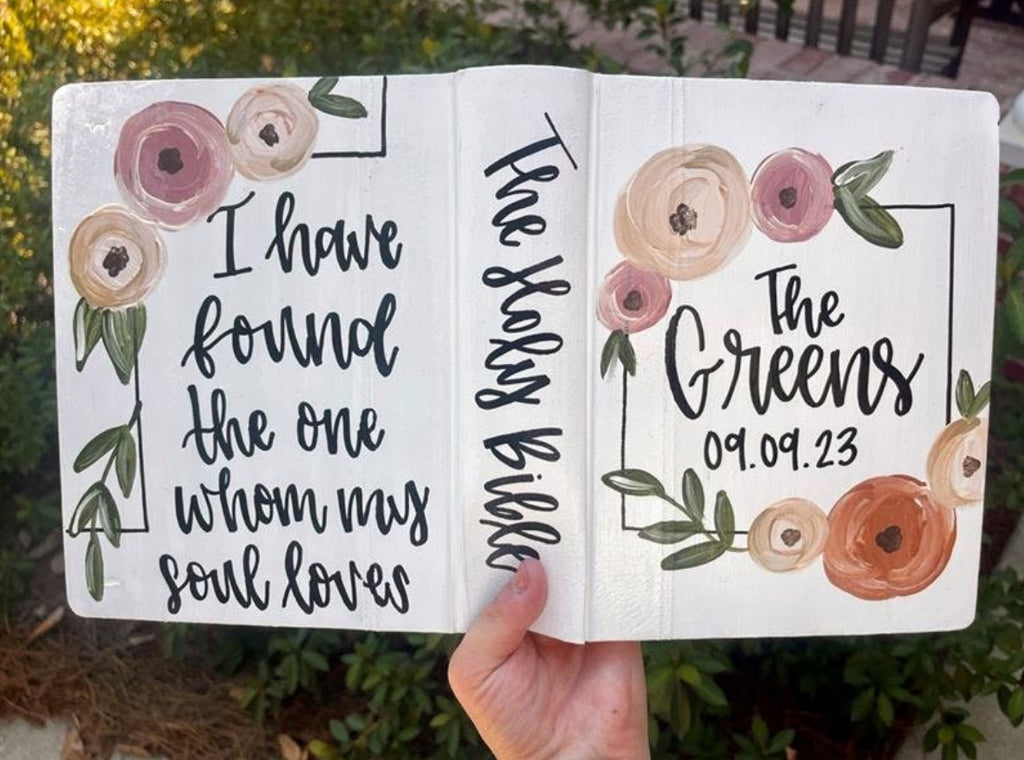 I have
found
the one
whom my
soul loves
The Holy Bible
The
Greens
09.09.23